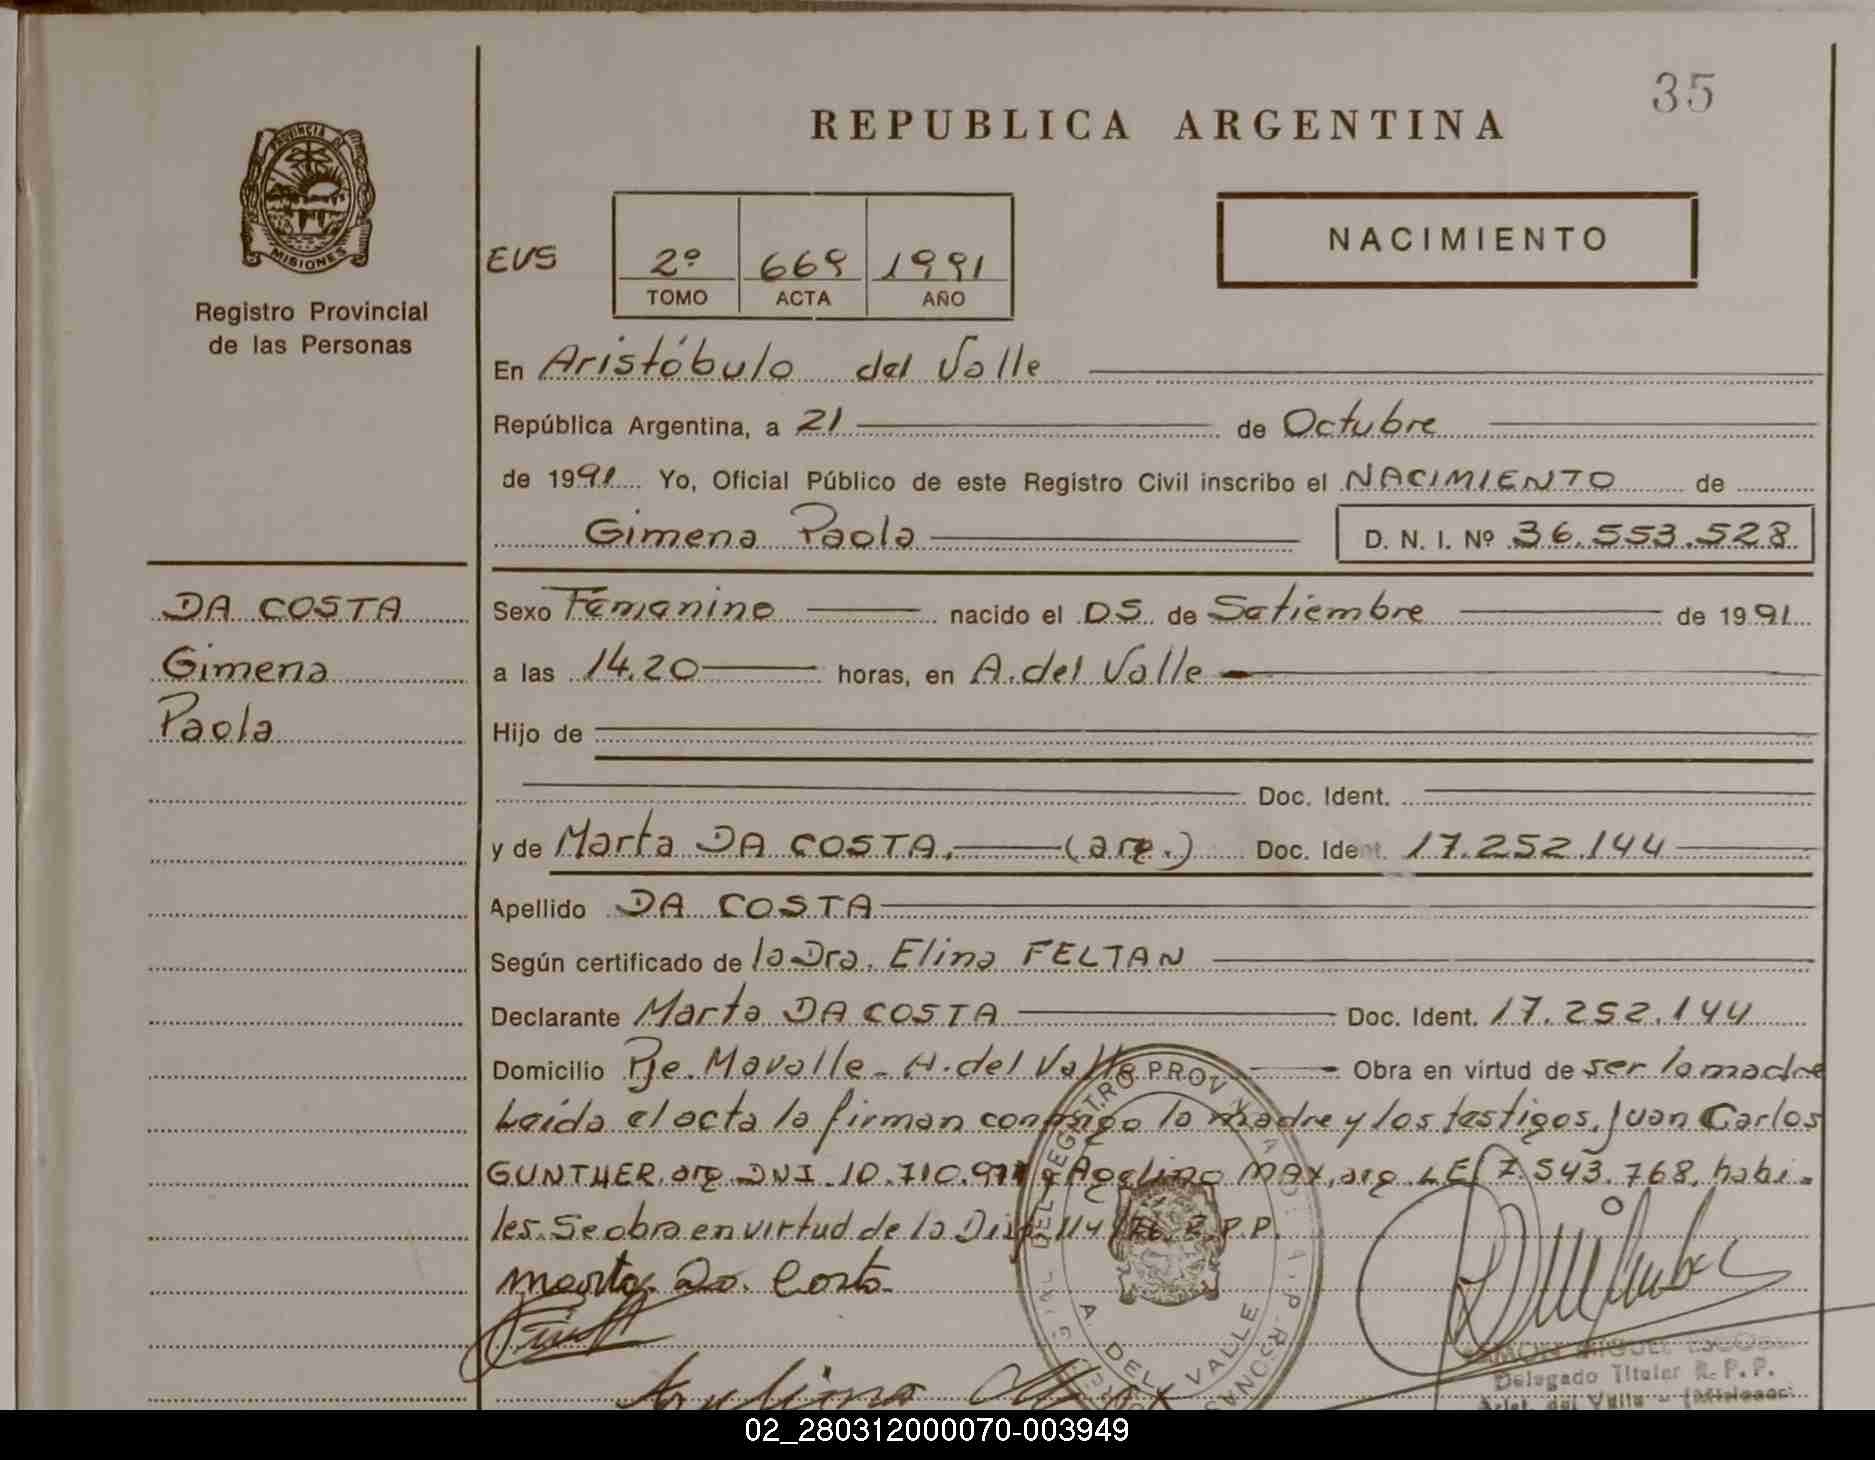 35
REPUBLICA ARGENTINA
PROVINCIA
MISIONES
Registro Provincial
de las Personas
EVS
2º 669 1991
TOMO ACTA AÑO
NACIMIENTO
En Aristóbulo del Valle
República Argentina, a 21 de Octubre
de 1991 Yo, Oficial Público de este Registro Civil inscribo el NACIMIENTO de
Gimena Paola D. N. I. Nº 36.553.528
DA COSTA
Gimena
Paola
Sexo Femenino nacido el 05 de Setiembre de 1991
a las 14.20 horas, en A. del Valle
Hijo de
Doc. Ident.
y de Marta DA COSTA. (arg.) Doc. Ident. 17.252.144
Apellido DA COSTA
Según certificado de la Dra. Elina FELTAN
Declarante Marta DA COSTA Doc. Ident. 17.252.144
Domicilio Pje. Mavalle - A. del Valle Obra en virtud de ser la madre
Leída el acta la firman conmigo la madre y los testigos, Juan Carlos
GUNTHER, arg. DNI. 10.710.97 MAX, arg. LE. 7.543.768, habi-
les. Se obra en virtud de la Disp. 114/76 R.P.P.
Marta Da. Costa
A. DEL VALLE
MIGUEL
Delegado Titular R. P. P.
Arist. del Valle - (Misiones)
02_280312000070-003949